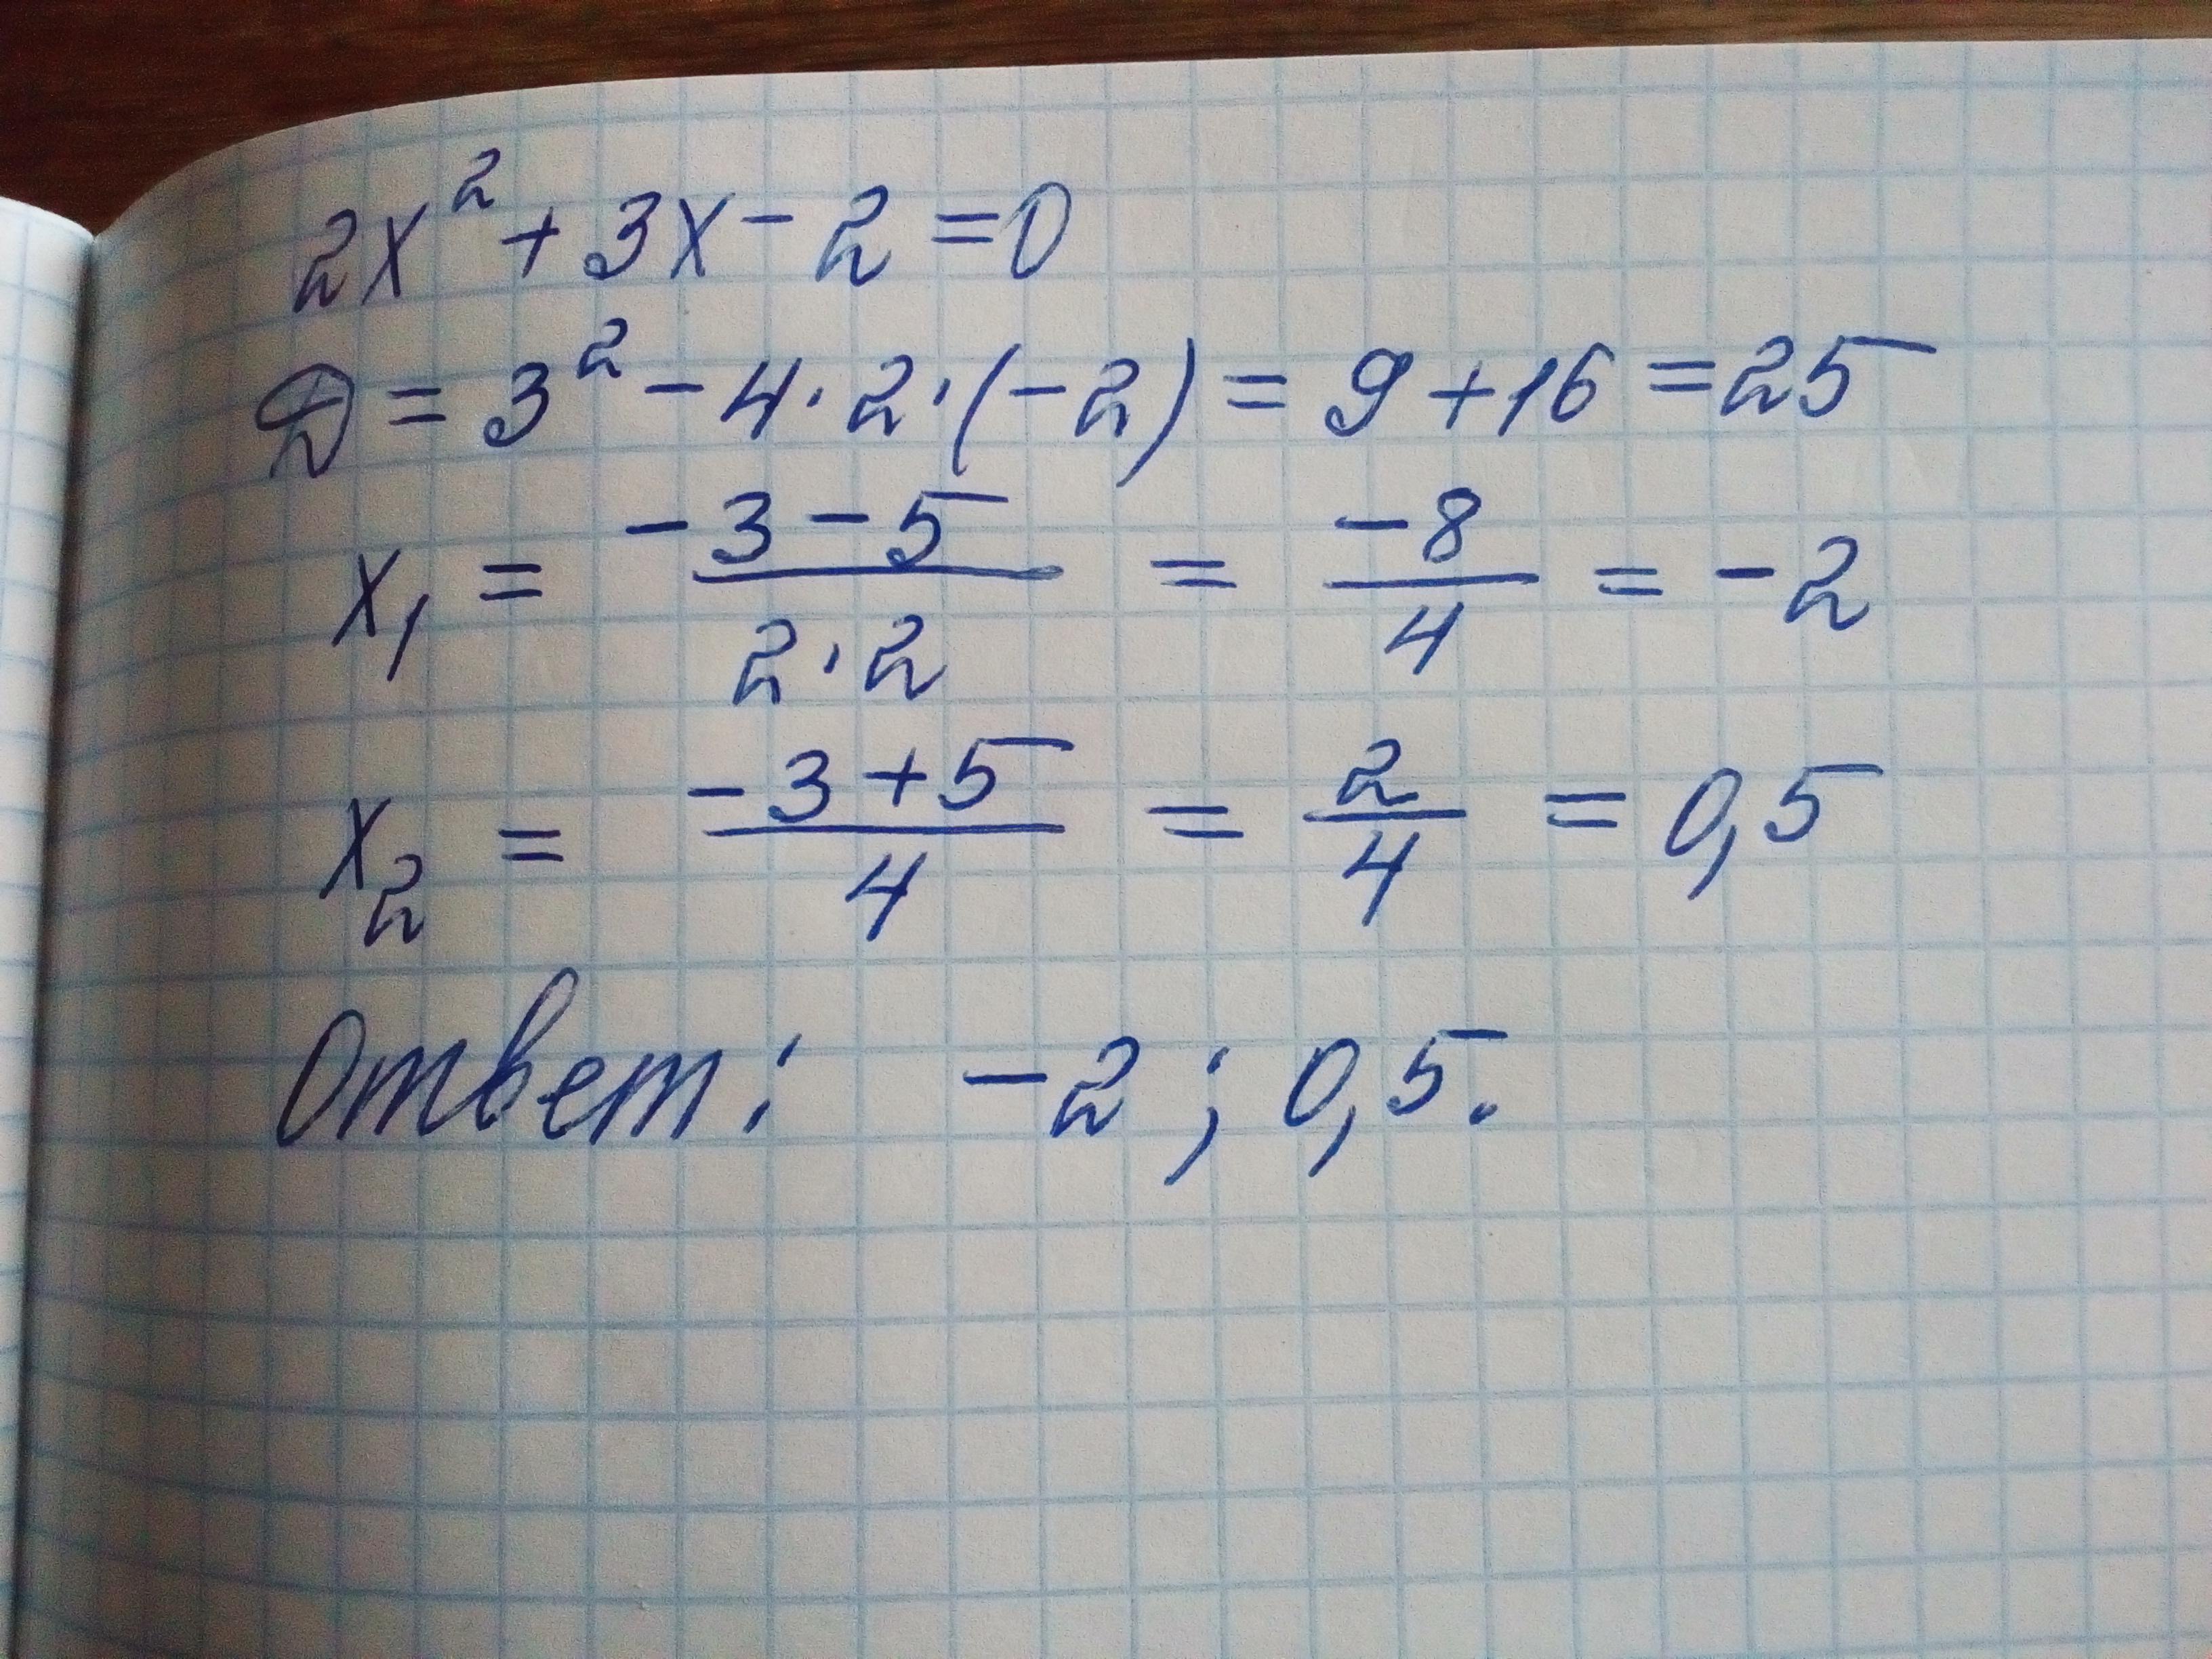 2x² + 3x - 2 = 0
D = 3² - 4 · 2 · (-2) = 9 + 16 = 25
x₁ = (-3 - 5)/(2 · 2) = -8/4 = -2
x₂ = (-3 + 5)/4 = 2/4 = 0,5
Ответ: -2 ; 0,5.